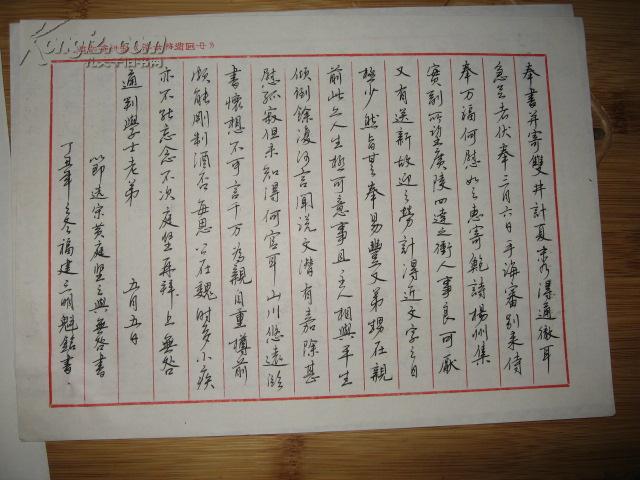 奉書并寄雙井計夏末乃得通徹耳
急足者伏奉三月六日手誨審別来侍
奉万福何慰如之惠寄鮑詩楊州集
實副所望廣陵四達之衝人事良可厭
又有送新故迎之勞計得近文字之日
極少然旨其之奉易豐又弟甥在親
前此亦人生極可意事且主人相與平生
傾倒餘復何言聞說文潜有嘉除甚
慰孤寂但未知得何官耳山川悠遠臨
書懷想不可言千万為親自重樽前
頗能剛制酒否每思公在魏時多小疾
亦不能忘念不次庭堅再拜上無咎
通判學士老弟 五月五日
以即选宋黄庭堅之與無咎書
丁丑年之冬福建三明魁銘書